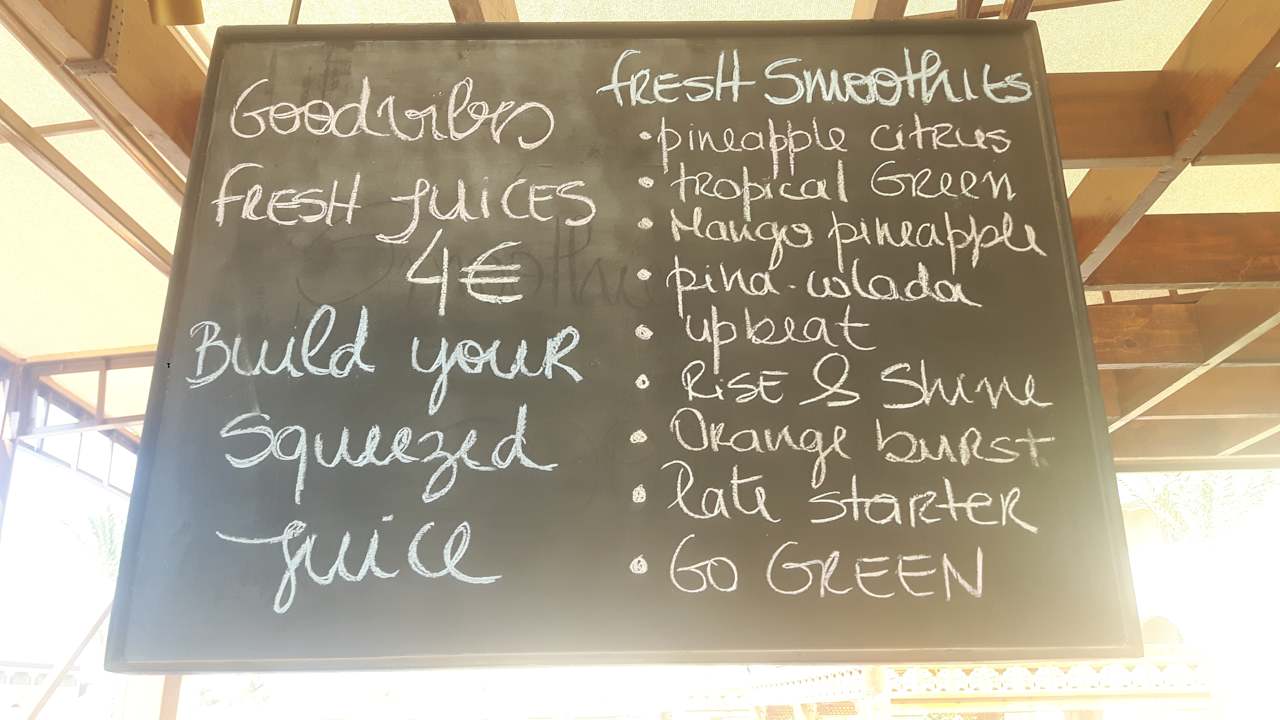 Goodvibes
FRESH JUICES
4€
Build your
Squeezed
Juice
FRESH Smoothies
• pineapple citrus
• tropical GReen
• Mango pineapple
• pina-colada
• upbeat
• RiSE & Shine
• Orange buRst
• late starter
• GO GREEN